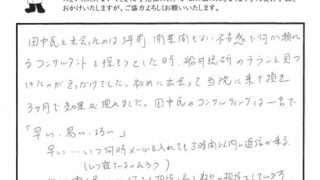 おかけいたしますが、ご協力よろしくお願いいたします。
田中氏と出会ったのは3年前、開業間もない不安感で何か頼れる
コンサルタントと探そうとした時、船井総研のチラシを見つ
けたのがきっかけでした。初めに出会って当院に来て頂き
3ヶ月で効果が現れました。田中氏のコンサルティングは一言で
「早い・易い・巧い」
早い…いつ何時メールを入れても3時間以内に返信が来る
(いつ寝ているんだろう)